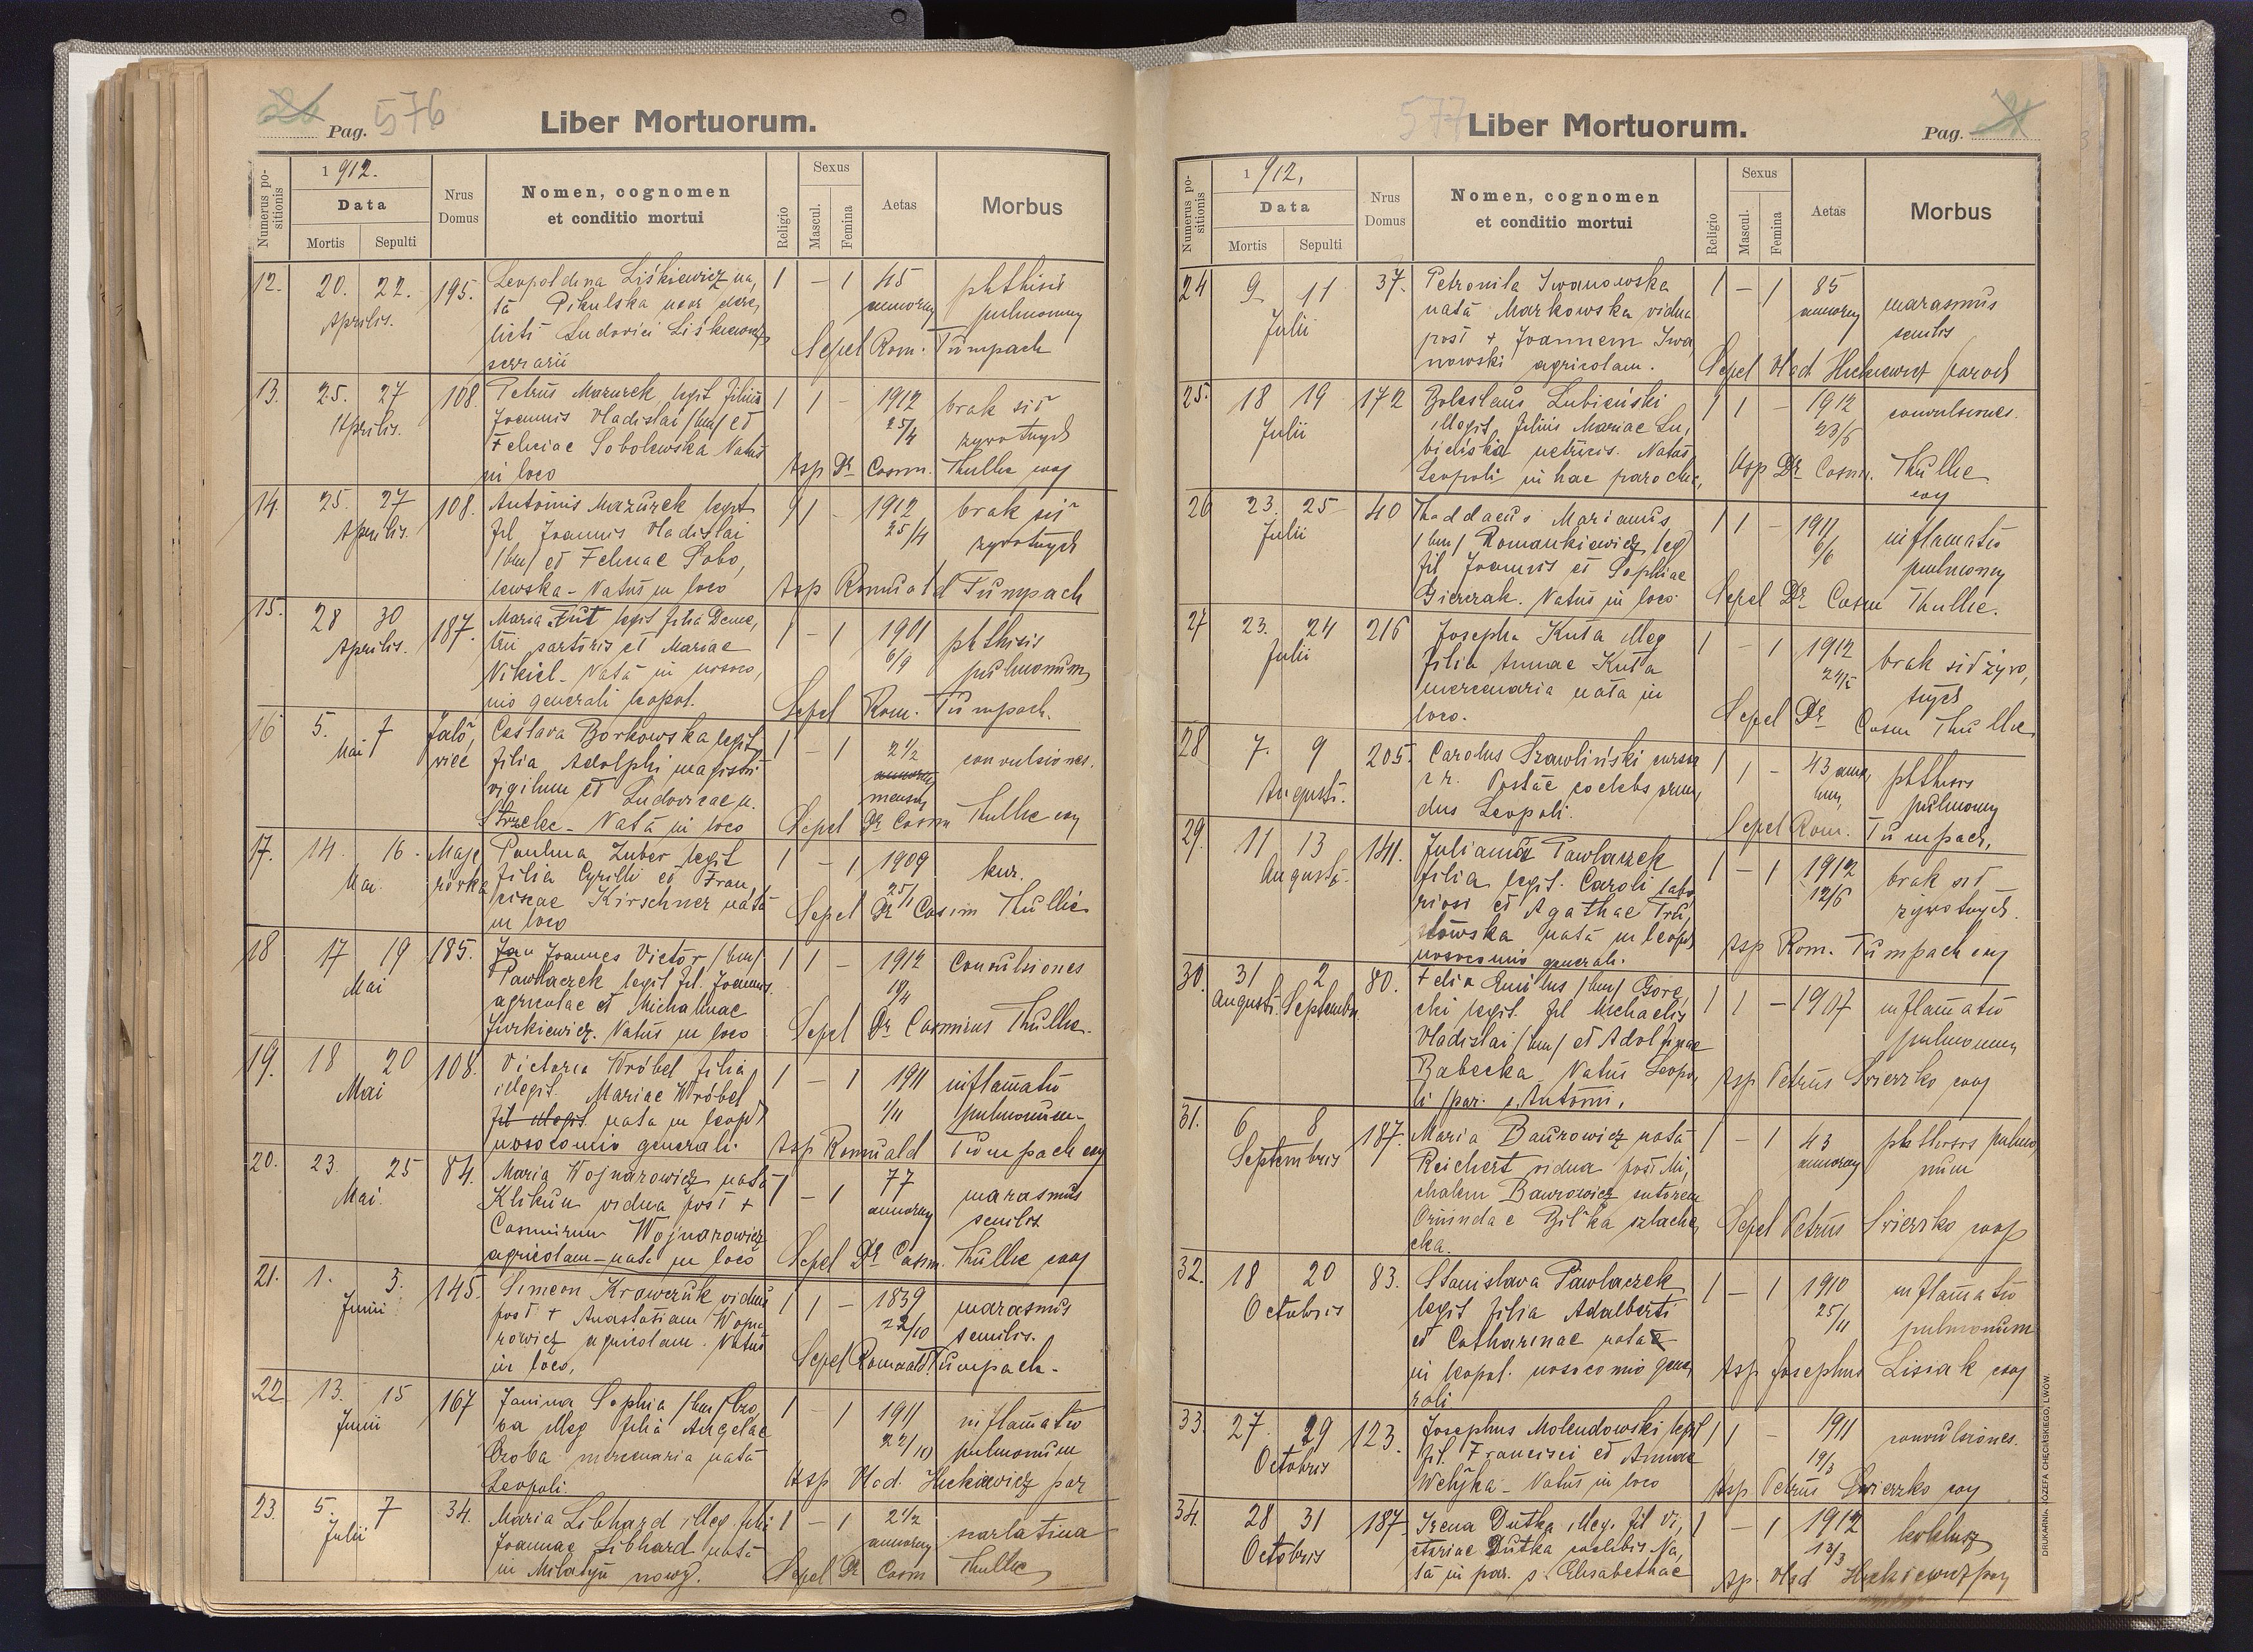 Pag. 576
Liber Mortuorum.
Numerus positionis
1912.
Data
Mortis Sepulti
Nrus Domus
Nomen, cognomen et conditio mortui
Religio
Sexus
Mascul. Femina
Aetas
Morbus
12. 20. 22. Aprilis. 195. 1 – 1 45 annorum phthisis pulmonum
Leopoldina Liśkiewicz na,
ta Pikulska uxor dere,
licta Ludovici Liśkiewicz
serrarii
Sepel Rom. Tumpach
13. 25. 27 Aprilis. 108. 1 1 – 1912 25/4 brak sił żywotnych
Petrus Mazurek legit filius
Joannis Vladislai /bin/ et
Feliciae Sobolewska Natus
in loco
Asp Dr Casim. Thullie coop
14. 25. 27 Aprilis. 108. 1 1 – 1912 25/4 brak sił żywotnych
Antonius Mazurek legit
fil Joannis Vladislai
/bin/ et Feliciae Sobo,
lewska – Natus in loco
Asp Romuald Tumpach
15. 28 30 Aprilis. 187. 1 – 1 1901 6/9 phthisis pulmonum
Maria Fut legit filia Deme,
trii sartoris et Mariae
Nikiel – Nata in nosoco,
mio generali leopol.
Sepel Rom. Tumpach.
16 5. 7 Mai Jało,wiec 1 – 1 2 1/2 mensum convulsiones.
Ceslava Borkowska legit
filia Adolphi magistri
vigilum et Ludovicae n.
Strzelec – Nata in loco
Sepel Dr Casim Thullie coop
17. 14. 16. Mai. Majerówka 1 – 1 1909 25/1 kur.
Paulina Zuber legit
filia Cyrilli et Fran,
ciscae Kirschner nata
in loco
Sepel Dr Casim Thullie
18 17 19 Mai 185. 1 1 – 1912 18/4 Convulsiones
Jan Joannes Victor /bin/
Pawłaczek legit fil. Joannis
agricolae et Michalinae
Jurkiewicz. Natus in loco
Sepel Dr Casimirus Thullie.
19. 18 20 Mai 108. 1 – 1 1911 1/11 inflamatio pulmonum.
Victoria Wróbel filia
illegit. Mariae Wróbel
fil illegit. nata in leopol
nosocomio generali.
Asp Romuald Tumpach coop
20. 23. 25 Mai. 84. 1 – 1 77 annorum marasmus senilis
Maria Wojnarowicz nata
Klikun vidua post +
Casimirum Wojnarowicz
agricolam – nata in loco
Sepel Dr Casim. Thullie coop
21. 1. 3. Junii 145. 1 1 – 1839 22/10 marasmus senilis.
Simeon Krawczuk viduus
post + Anastasiam Wojna
rowicz agricolam. Natus
in loco,
Sepel Romuald Tumpach.
22 13. 15 Junii 167 1 – 1 1911 22/10 inflamatio pulmonum
Janina Sophia /bin/
illeg filia Angelae
mercenaria nata
Leopoli.
Asp Vlad. Hickiewicz par
23. 5. 7 Julii 34. 1 – 1 2 1/2 annorum scarlatina
Maria Libhard illeg filia
Joannae Libhard nata
in Milatyn nowy.
Sepel Dr Casim Thullie
577
Liber Mortuorum.
Pag.
Numerus positionis
1912,
Data
Mortis Sepulti
Nrus Domus
Nomen, cognomen et conditio mortui
Religio
Sexus
Mascul. Femina
Aetas
Morbus
24 9 11 Julii 37. 1 – 1 85 annorum marasmus senilis
Petronila Iwanowska
nata Markowska vidua
post + Joannem Iwa
nowski agricolam.
Sepel Vlad Hickiewicz paroch
25. 18 19 Julii 172 1 1 – 1912 23/6 convulsiones.
Boleslaus Lubieński
illegit. filius Mariae Lu,
bieńska nutricis. Natus
Leopoli in hac parochia,
Asp Dr Casim. Thullie coop
26 23. 25 Julii 40 1 1 – 1911 6/6 inflamatio pulmonum
Thaddaeus Marianus
/bin/ Romankiewicz leg
fil Joannis et Sophiae
Gierczak. Natus in loco.
Sepel Dr Casim Thullie.
27 23. 24 Julii 216 1 – 1 1912 brak sił żywo,tnych
Josepha Kuta illeg
filia Annae Kuta
mercenaria nata in
loco.
Sepel Dr Casim Thullie
28 7. 9 Augusti. 205. 1 1 – 43 anno,rum phthisis pulmonum
Carolus Szawliński cursor
c r. Postae coelebs oriun
dus Leopoli.
Sepel Rom. Tumpach,
29. 11 13 Augusti. 141. 1 – 1 1912 12/6 brak sił żywotnych.
Julianna Pawłaczek
filia legit. Caroli labo
riosi et Agathae
nata in leopol
nosocomio generali.
Asp Rom. Tumpach coop
30. 31 Augusti 2 Septembris 80. 1 1 – 1907 inflamatio pulmonum
Felix Emilius /bin/ Gore,
cki legit. fil Michaelis
Vladislai /bin/ et Adolfinae
Babecka Natus Leopo,
li /par. s. Antonii.
Asp Petrus Świerzko coop
31. 6 8 Septembris 187. 1 – 1 43 annorum phthisis pulmo,num
Maria Baurowicz nata
Reichert vidua post Mi,
chalem Baurowicz sutorem
Oriunda e Biłka szlache
cka.
Sepel Petrus Świerzko coop
32. 18 20 Octobris 83. 1 – 1 1910 25/11 inflamatio pulmonum
Stanislava Pawłaczek
legit filia Adalberti
et Catharinae nata
in leopol. nosocomio gene,
rali
Asp Josephus Lisiak coop
33. 27. 29 Octobris 123. 1 1 – 1911 19/3 convulsiones.
Josephus Molendowski legit
fil. Francisci et Annae
Wełyka – Natus in loco
Asp Petrus Świerzko coop
34. 28 31 Octobris 187. 1 – 1 1912 13/3 koklusz
Irena Dutka illeg. fil Vi,
ctoriae Dutka coelebis Na,
ta in par. s. Elisabethae
Asp. Vlad Hickiewicz par
DRUKARNI JÓZEFA CHĘCIŃSKIEGO, LWÓW.